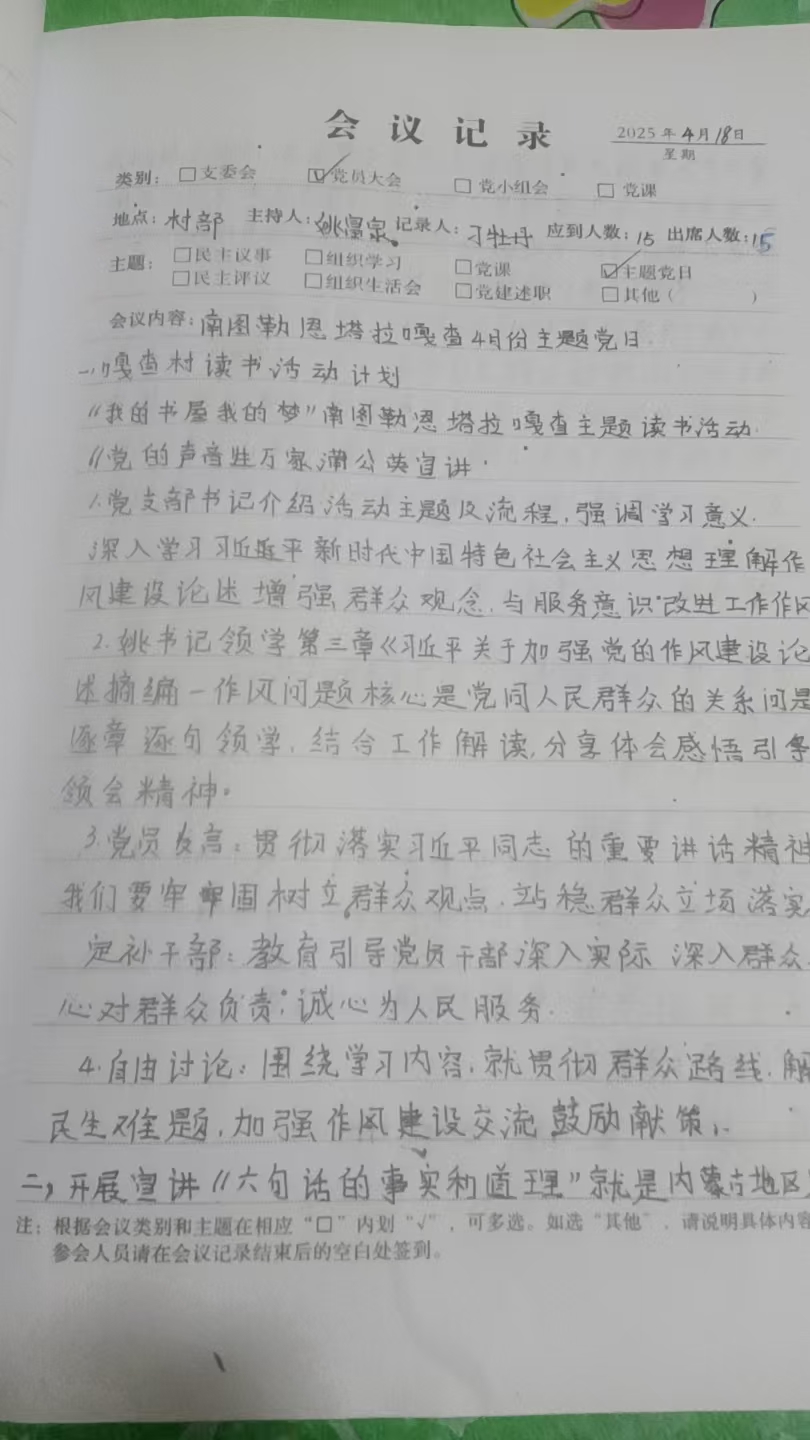 会议记录
2025年4月18日
星期
类别：□支委会 ☑党员大会 □党小组会 □党课
地点：村部 主持人：姚温泉 记录人：刁牡丹 应到人数：15 出席人数：15
主题：□民主议事 □组织学习 □党课 ☑主题党日
□民主评议 □组织生活会 □党建述职 □其他（ ）
会议内容：南图勒恩塔拉嘎查4月份主题党日.
一、嘎查村读书活动计划
“我的书屋我的梦”南图勒恩塔拉嘎查主题读书活动.
《党的声音进万家蒲公英宣讲.
1.党支部书记介绍活动主题及流程,强调学习意义.
深入学习习近平新时代中国特色社会主义思想理解作
风建设论述增强群众观念,与服务意识改进工作作风
2.姚书记领学第三章《习近平关于加强党的作风建设论
述摘编一作风问题核心是党同人民群众的关系问
逐章逐句领学,结合工作解读,分享体会感悟引导
领会精神。
3.党员发言：贯彻落实习近平同志的重要讲话精神
我们要牢牢固树立群众观点.站稳群众立场落实
定补干部：教育引导党员干部深入实际 深入群众
心对群众负责,诚心为人民服务.
4.自由讨论：围绕学习内容,就贯彻群众路线,解
民生难题,加强作风建设交流鼓励献策,.
二,开展宣讲“六句话的事实和道理”就是内蒙古地区
注：根据会议类别和主题在相应“□”内划“√”，可多选。如选“其他”，请说明具体内容
参会人员请在会议记录结束后的空白处签到。